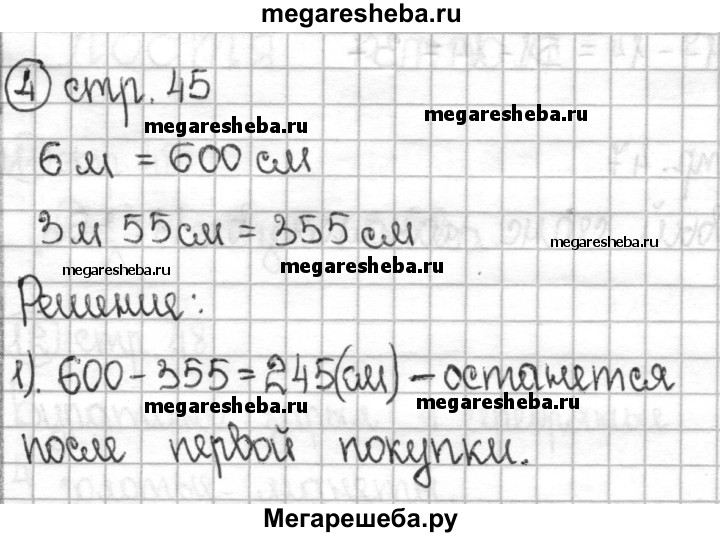 megaresheba.ru
4 стр. 45
megaresheba.ru megaresheba.ru
6 м = 600 см
3 м 55 см = 355 см
megaresheba.ru megaresheba.ru megaresheba.ru
Решение:
1). 600 - 355 = 245 (см) - останется
megaresheba.ru megaresheba.ru
после первой покупки.
Мегарешеба.ру